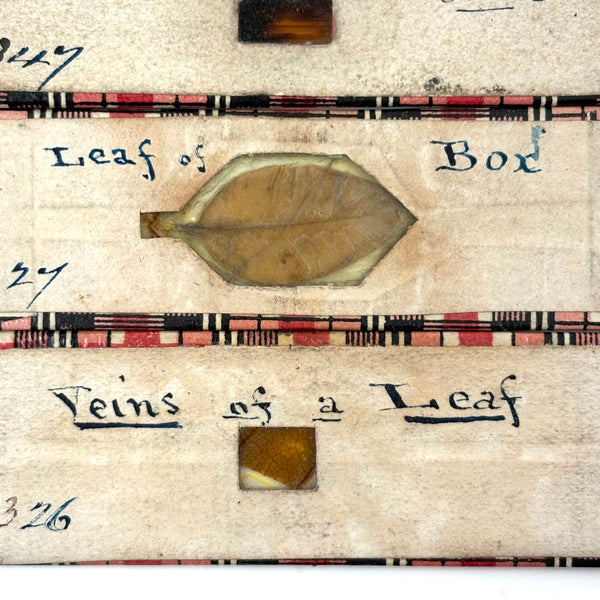 347
Leaf of Box
27
Veins of a Leaf
326